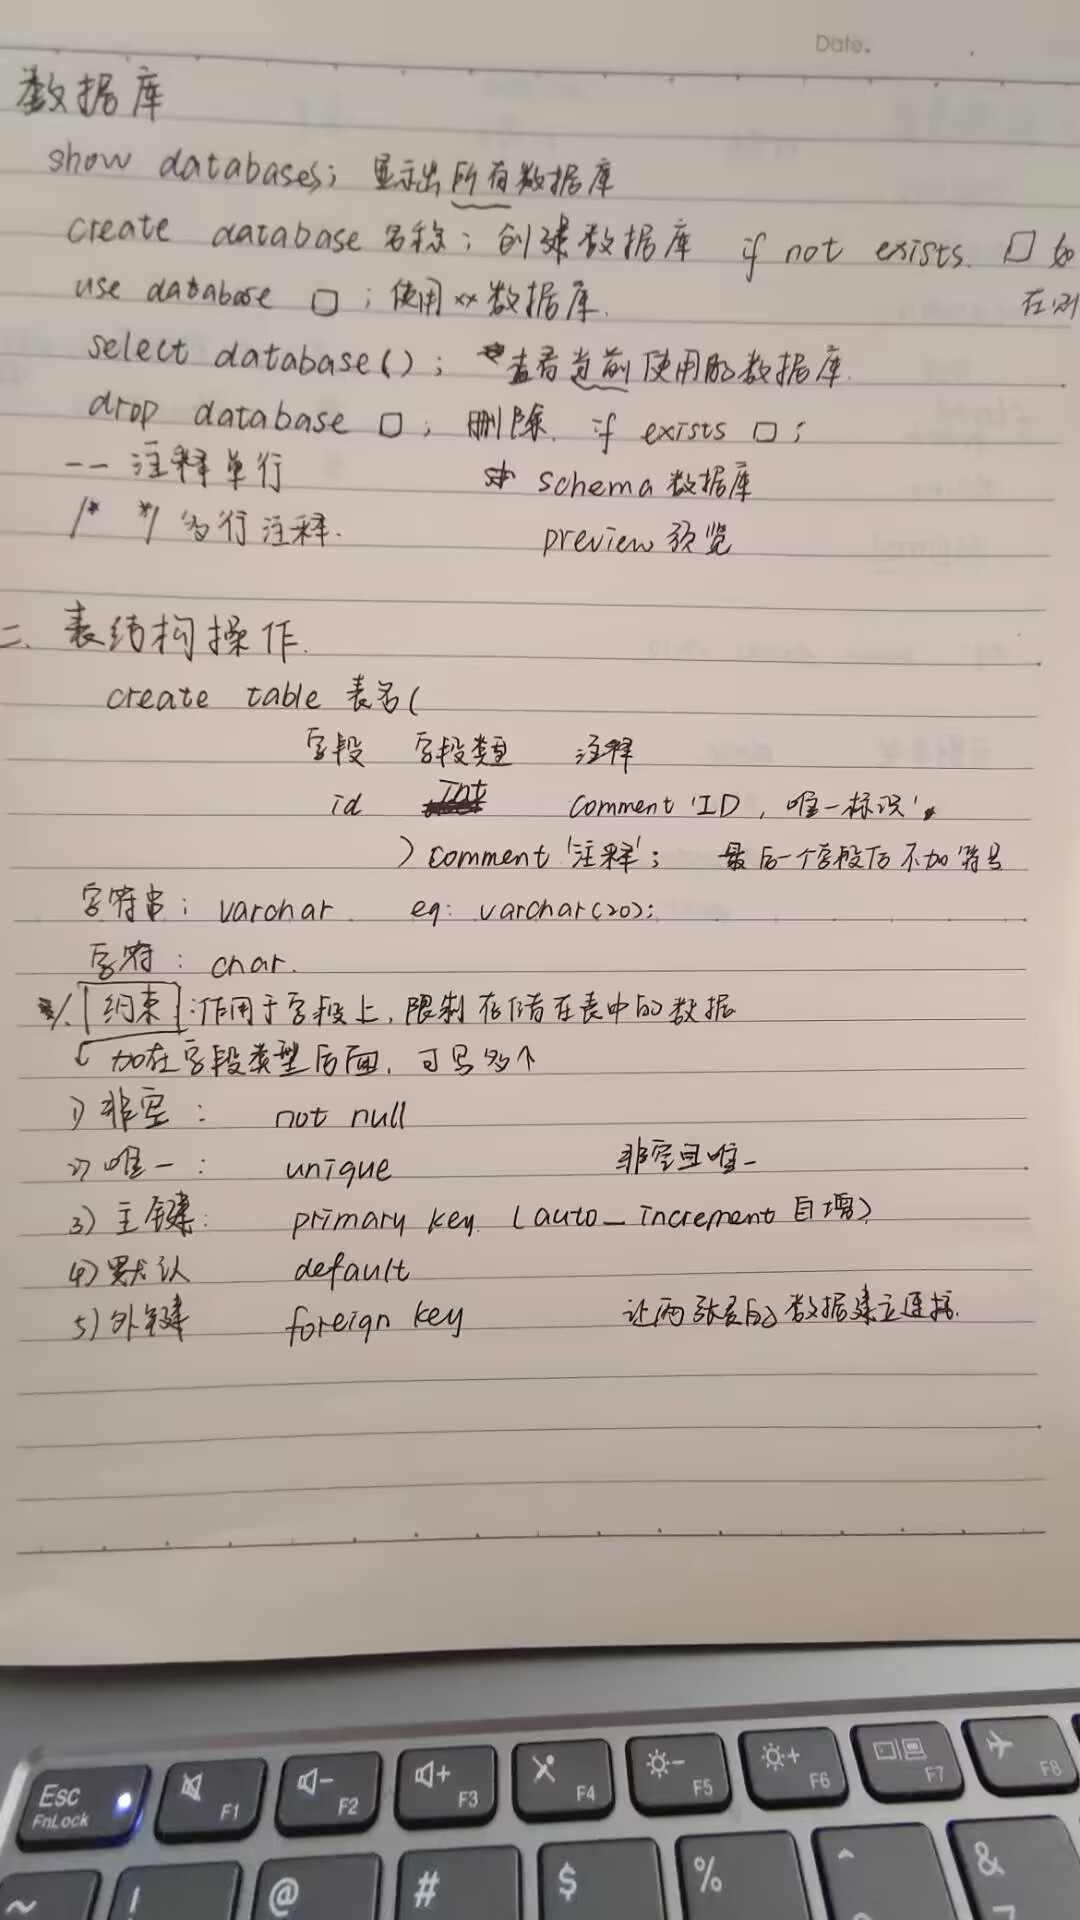 Date.
数据库
show databases; 显示出所有数据库
create database 名称; 创建数据库 if not exists. □ 如
use database □; 使用xx数据库. 在,则
select database(); 查看当前使用的数据库.
drop database □; 删除. if exists □;
-- 注释单行 schema 数据库
/* */ 多行注释. preview 预览
二、表结构操作.
create table 表名(
字段 字段类型 注释
id Int comment 'ID, 唯一标识',
) comment '注释'; 最后一个字段后不加符号
字符串: varchar eg: varchar(20);
字符: char.
约束:作用于字段上,限制存储在表中的数据
加在字段类型后面,可写多个
1) 非空: not null
2) 唯一: unique 非空且唯一
3) 主键: primary key (auto_increment 自增)
4) 默认 default
5) 外键 foreign key 让两张表的数据建立连接.
Esc
FnLock
F1 F2 F3 F4 F5 F6 F7 F8
~ ! @ # $ % ^ & 7